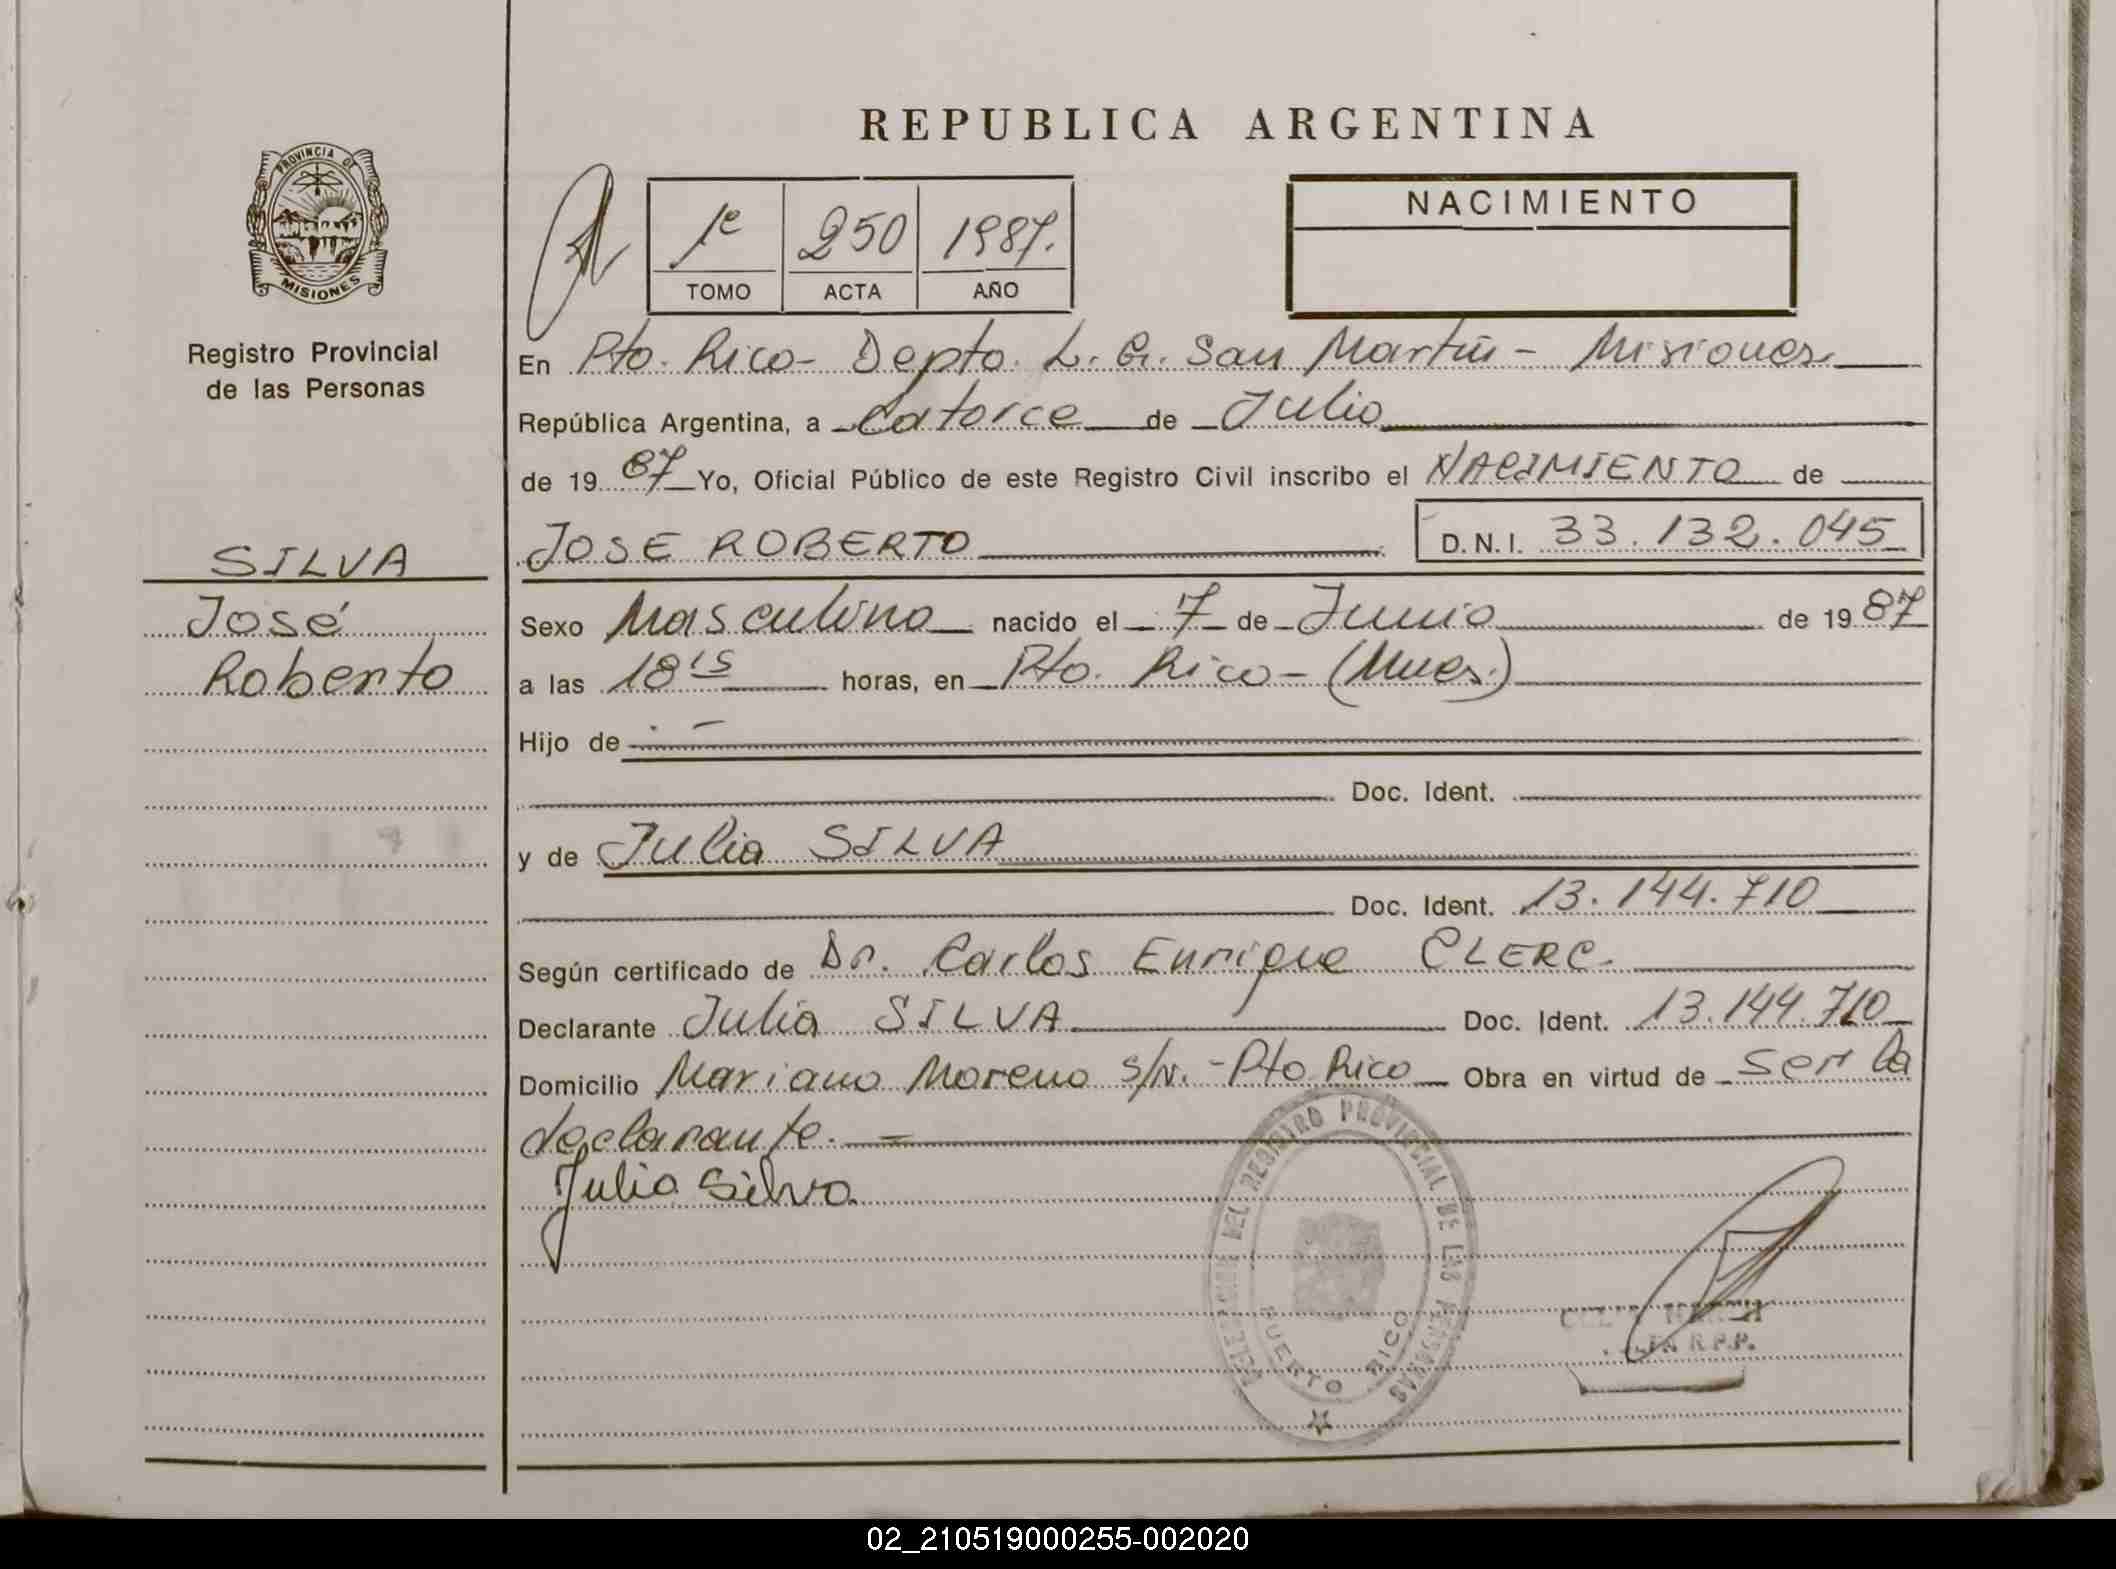 REPUBLICA ARGENTINA
PROVINCIA DE
MISIONES
Registro Provincial
de las Personas
1º 250 1987.
TOMO ACTA AÑO
NACIMIENTO
En Pto. Rico - Depto. L. G. San Martín - Misiones.
República Argentina, a Catorce de Julio
de 19 87 Yo, Oficial Público de este Registro Civil inscribo el NACIMIENTO de
SILVA
José
Roberto
JOSE ROBERTO D.N.I. 33.132.045
Sexo Masculino nacido el 7 de Junio de 19 87
a las 18 15 horas, en Pto. Rico - (Mnes.)
Hijo de
Doc. Ident.
y de Julia SILVA
Doc. Ident. 13.144.710
Según certificado de Dr. Carlos Enrique CLERC.
Declarante Julia SILVA Doc. Ident. 13.144.710
Domicilio Mariano Moreno s/N. - Pto Rico Obra en virtud de ser la
declarante.
Julia Silva
DEL REGISTRO PROVINCIAL DE LAS PERSONAS
PUERTO RICO
R.P.P.
02_210519000255-002020